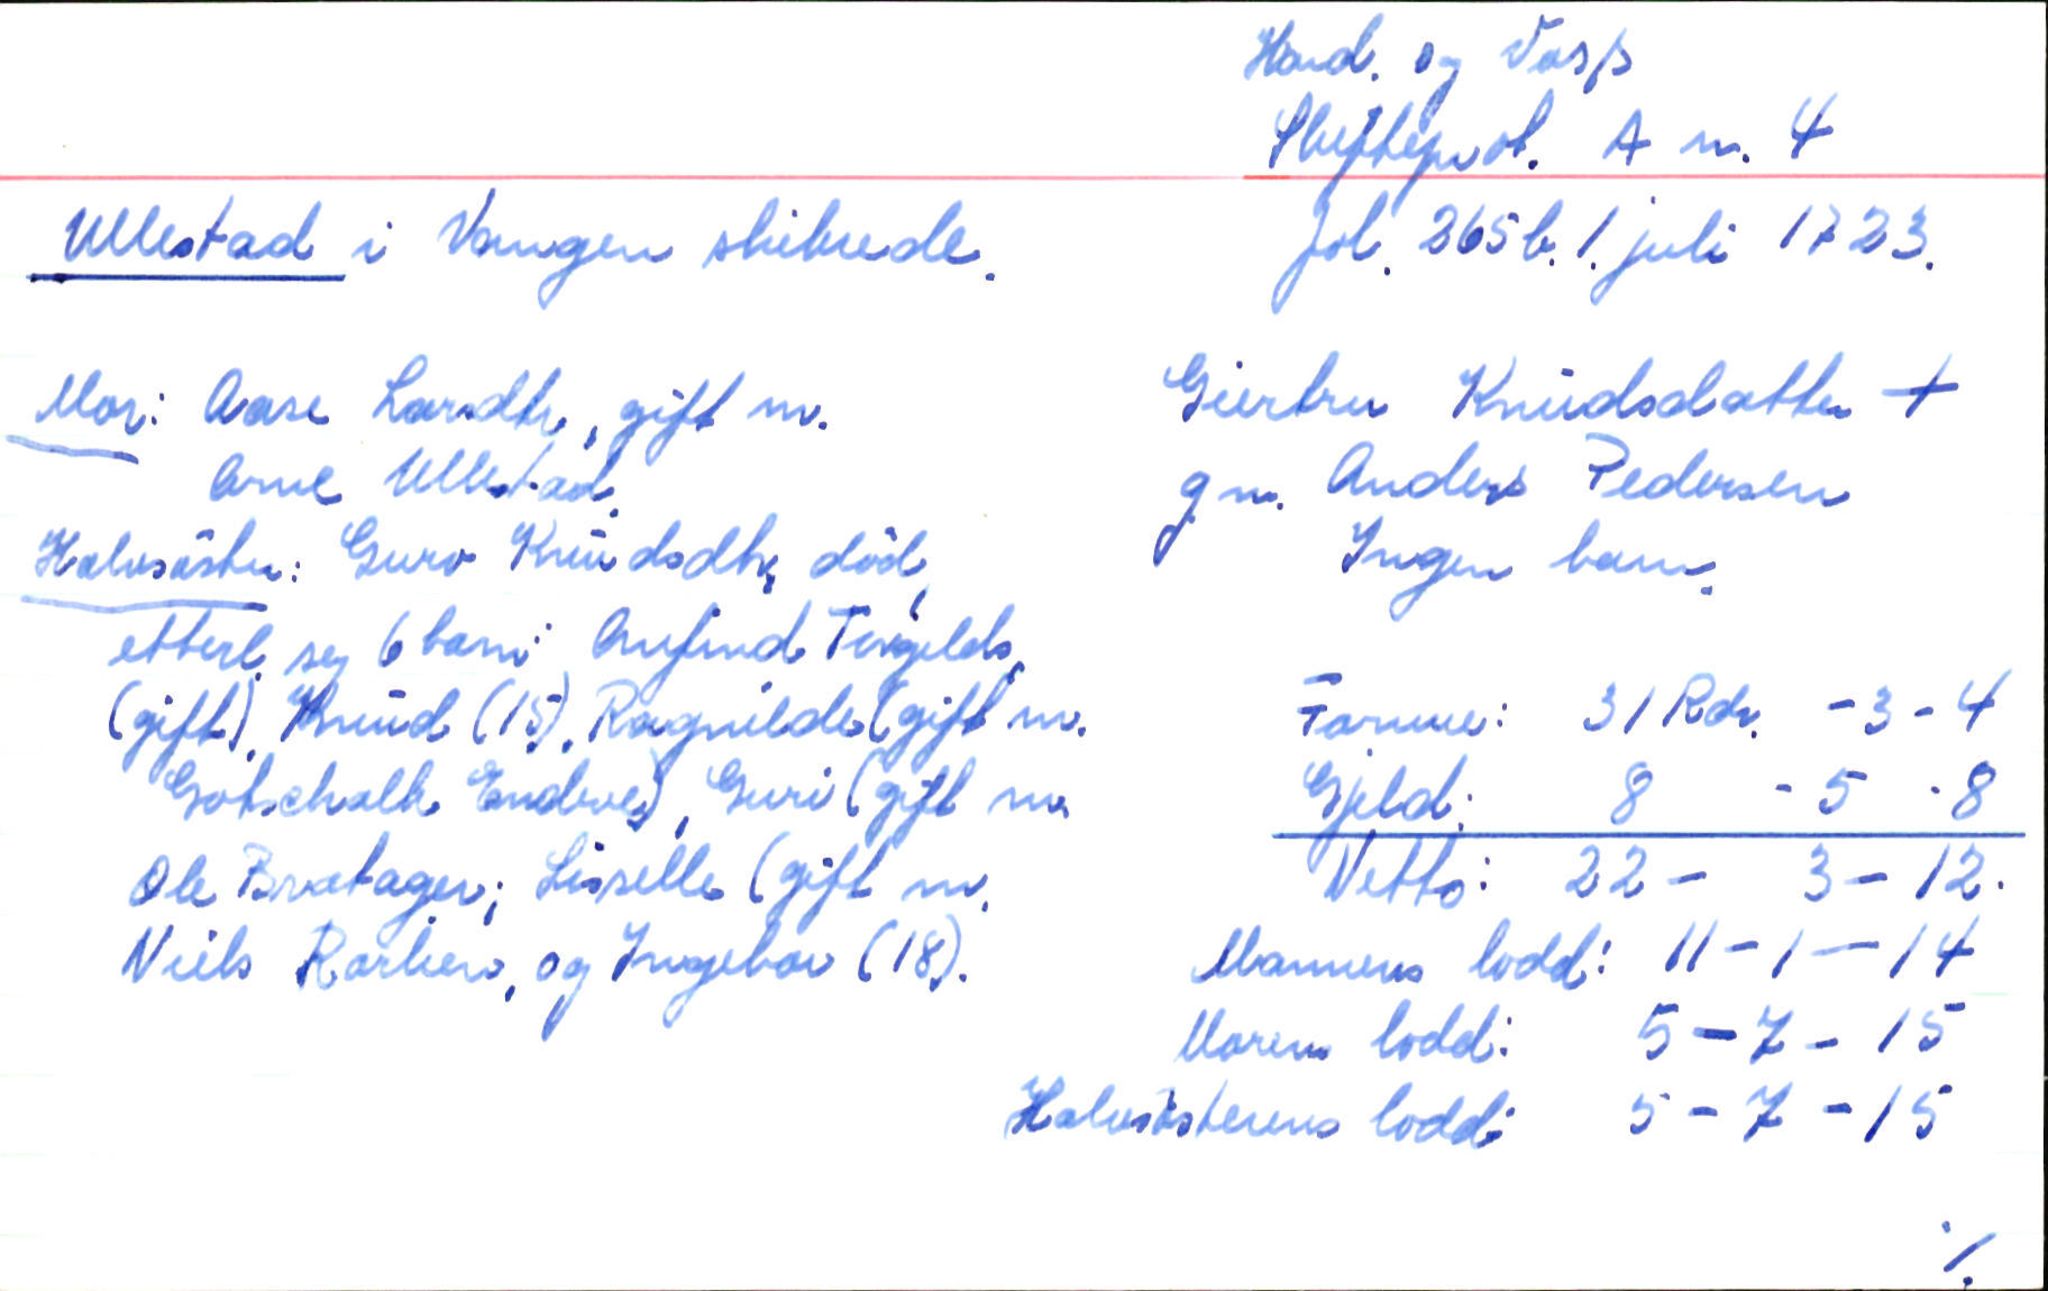 Hard. og Voss
Skifteprot. A nr. 4
Ullestad i Vangen skibrede.
fol. 265b. 1. juli 1723.
Mor: Aase Larsdtr, gift m.
Arne Ullestad.
Halvsöster: Guro Knudsdtr, död,
etterl. seg 6 barn: Anfind Torgilds,
(gift), Knud (15), Ragnilde (gift m.
Gotschalk Endres), Guri (gift m.
Ole Brætager; Lisselle (gift m.
Niels Rorken, og Ingebor (18).
Giertru Knudsdatter +
g m. Anders Pedersen
Ingen barn.
Formue: 31 Rdr. - 3 - 4
Gjeld: 8 - 5 - 8
Netto: 22 - 3 - 12.
Mannens lodd: 11 - 1 - 14
Morens lodd: 5 - 7 - 15
Halvsösterens lodd: 5 - 7 - 15
./.